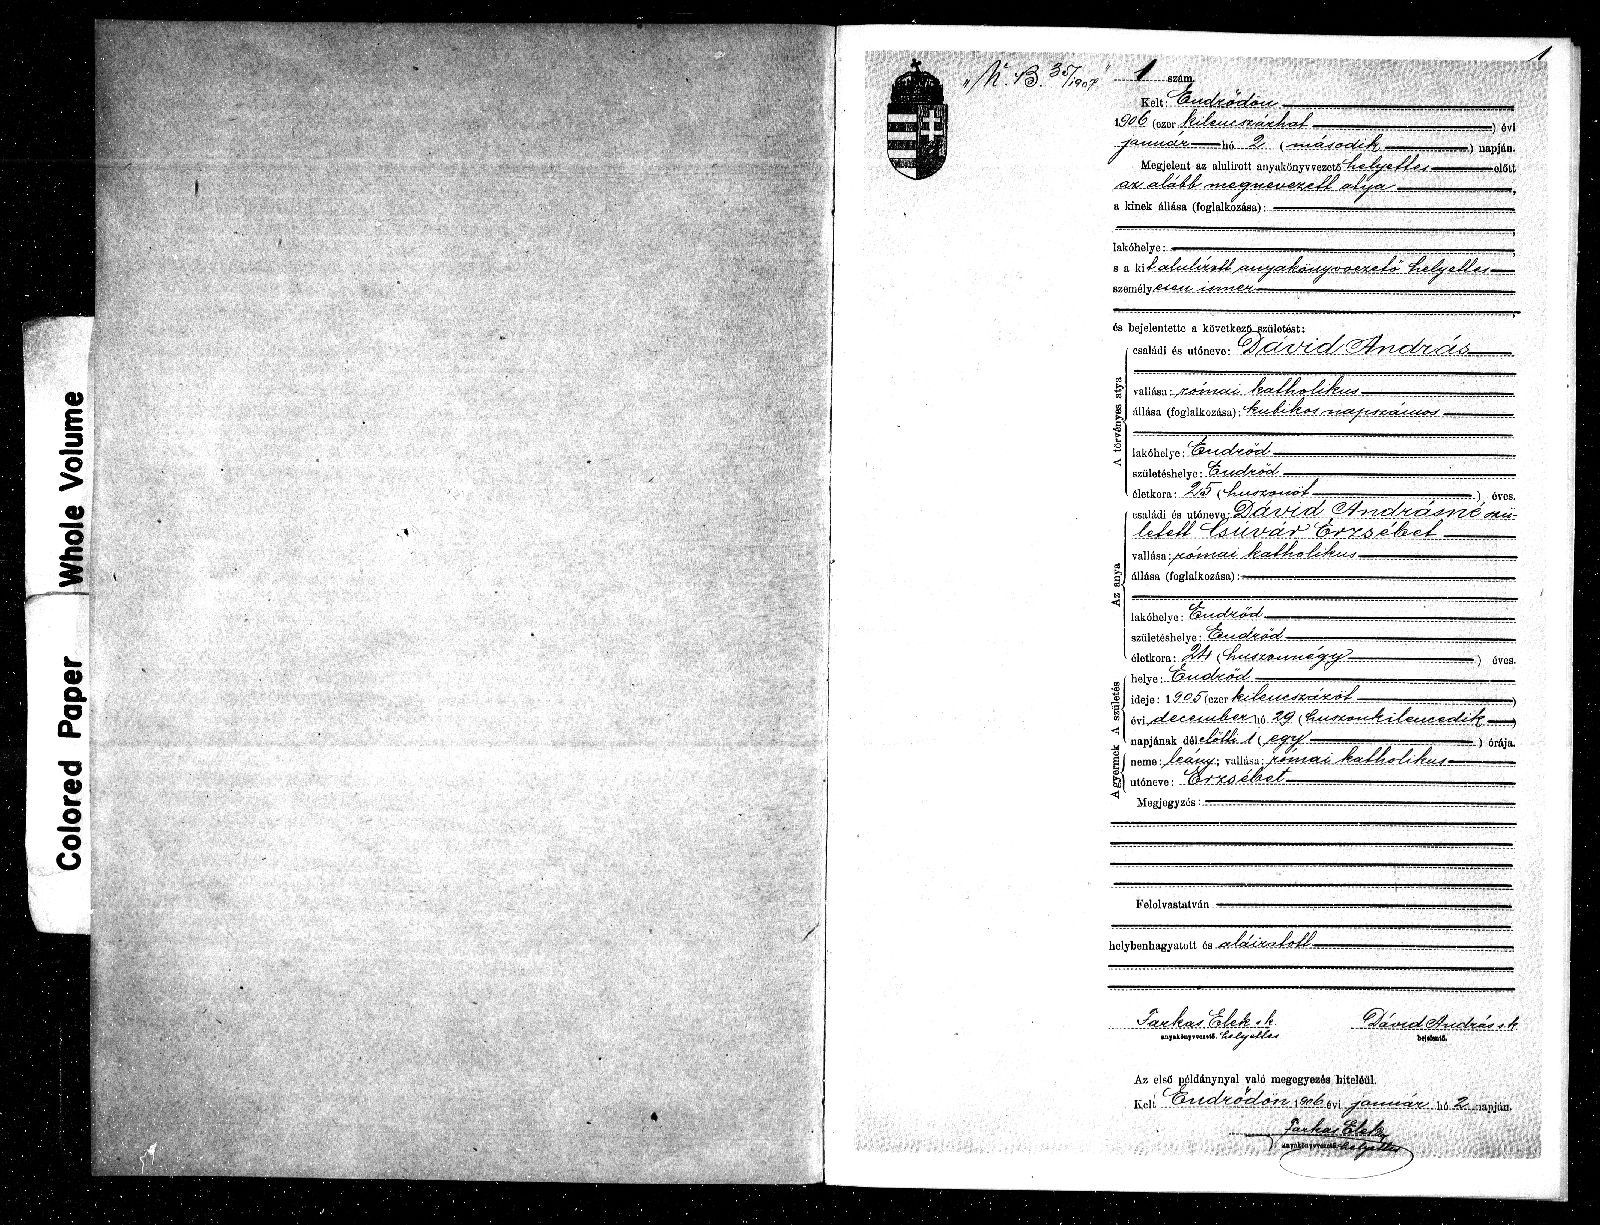 Colored Paper Whole Volume
1
„N. B. 35/1907"
1 szám.
Kelt: Endrődön
1906 (ezer kilenczszázhat) évi
január hó 2 (második) napján.
Megjelent az alulirott anyakönyvvezető helyettes előtt
az alább megnevezett atya,
a kinek állása (foglalkozása):
lakóhelye:
s a kit alulírott anyakönyvvezető helyettes
személyesen ismer
és bejelentette a következő születést:
A törvényes atya
családi és utóneve: Dávid András
vallása: római katholikus
állása (foglalkozása): kubikos napszámos
lakóhelye: Endrőd
születéshelye: Endrőd
életkora: 25 (huszonöt) éves.
Az anya
családi és utóneve: Dávid Andrásné szü-
letett Csúvár Erzsébet
vallása: római katholikus
állása (foglalkozása):
lakóhelye: Endrőd
születéshelye: Endrőd
életkora: 24 (huszonnégy) éves.
A születés
helye: Endrőd
ideje: 1905 (ezer kilenczszázöt)
évi december hó 29 (huszonkilencedik)
napjának délelőtti 1 (egy) órája.
A gyermek
neme: leány; vallása: római katholikus
utóneve: Erzsébet
Megjegyzés:
Felolvastatván
helybenhagyatott és aláiratott
Farkas Elek s.k. Dávid András s.k.
anyakönyvvezető helyettes bejelentő.
Az első példánynyal való megegyezés hiteléül.
Kelt Endrődön 1906 évi január hó 2 napján.
Farkas Elek
anyakönyvvezető helyettes